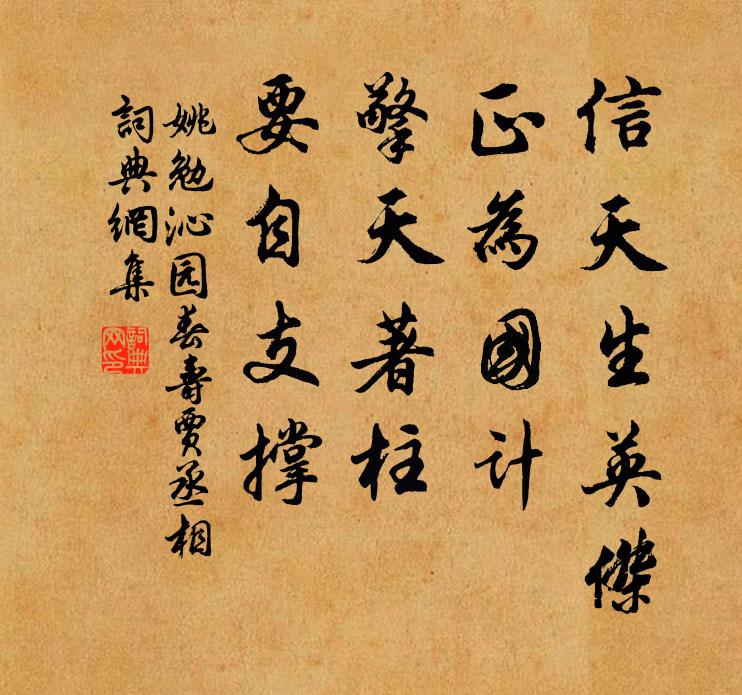 信天生英傑
正為國計
擎天著柱
要自支撑
姚勉沁园春壽賈丞相
詞典網集
詞典网印